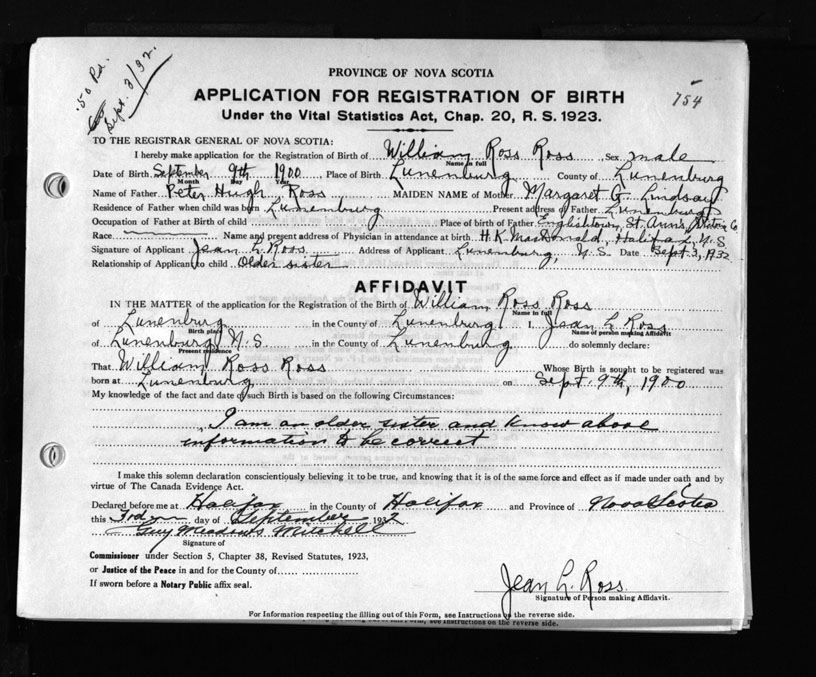 .50 Pd.
Sept. 3/32.
754
PROVINCE OF NOVA SCOTIA
APPLICATION FOR REGISTRATION OF BIRTH
Under the Vital Statistics Act, Chap. 20, R. S. 1923.
TO THE REGISTRAR GENERAL OF NOVA SCOTIA:
I hereby make application for the Registration of Birth of William Ross Ross Sex male
Name in full
Date of Birth September 9th 1900 Place of Birth Lunenburg County of Lunenburg
Month Day Year
Name of Father Peter Hugh Ross MAIDEN NAME of Mother Margaret G. Lindsay
Residence of Father when child was born Lunenburg Present address of Father Lunenburg
Occupation of Father at Birth of child Place of birth of Father Englishtown, St. Ann's, Victoria Co.
Race Name and present address of Physician in attendance at birth H. K. MacDonald, Halifax, N.S.
Signature of Applicant Jean L. Ross Address of Applicant Lunenburg, N.S. Date Sept 3, 1932
Relationship of Applicant to child Older sister
AFFIDAVIT
IN THE MATTER of the application for the Registration of the Birth of William Ross Ross
Name in full
of Lunenburg in the County of Lunenburg I, Jean L. Ross
Birth place Name of person making Affidavit
of Lunenburg N.S. in the County of Lunenburg do solemnly declare:
Present residence
That William Ross Ross Whose Birth is sought to be registered was
born at Lunenburg on Sept. 9th, 1900
My knowledge of the fact and date of such Birth is based on the following Circumstances:
I am an older sister and know above
information to be correct
I make this solemn declaration conscientiously believing it to be true, and knowing that it is of the same force and effect as if made under oath and by
virtue of The Canada Evidence Act.
Declared before me at Halifax in the County of Halifax and Province of Nova Scotia
this day of September 1932
Guy Meadows Mitchell
Signature of
Commissioner under Section 5, Chapter 38, Revised Statutes, 1923,
or Justice of the Peace in and for the County of
If sworn before a Notary Public affix seal.
Jean L. Ross
Signature of Person making Affidavit.
For Information respecting the filling out of this Form, see Instructions on the reverse side.
out of this Form, see Instructions on the reverse side.